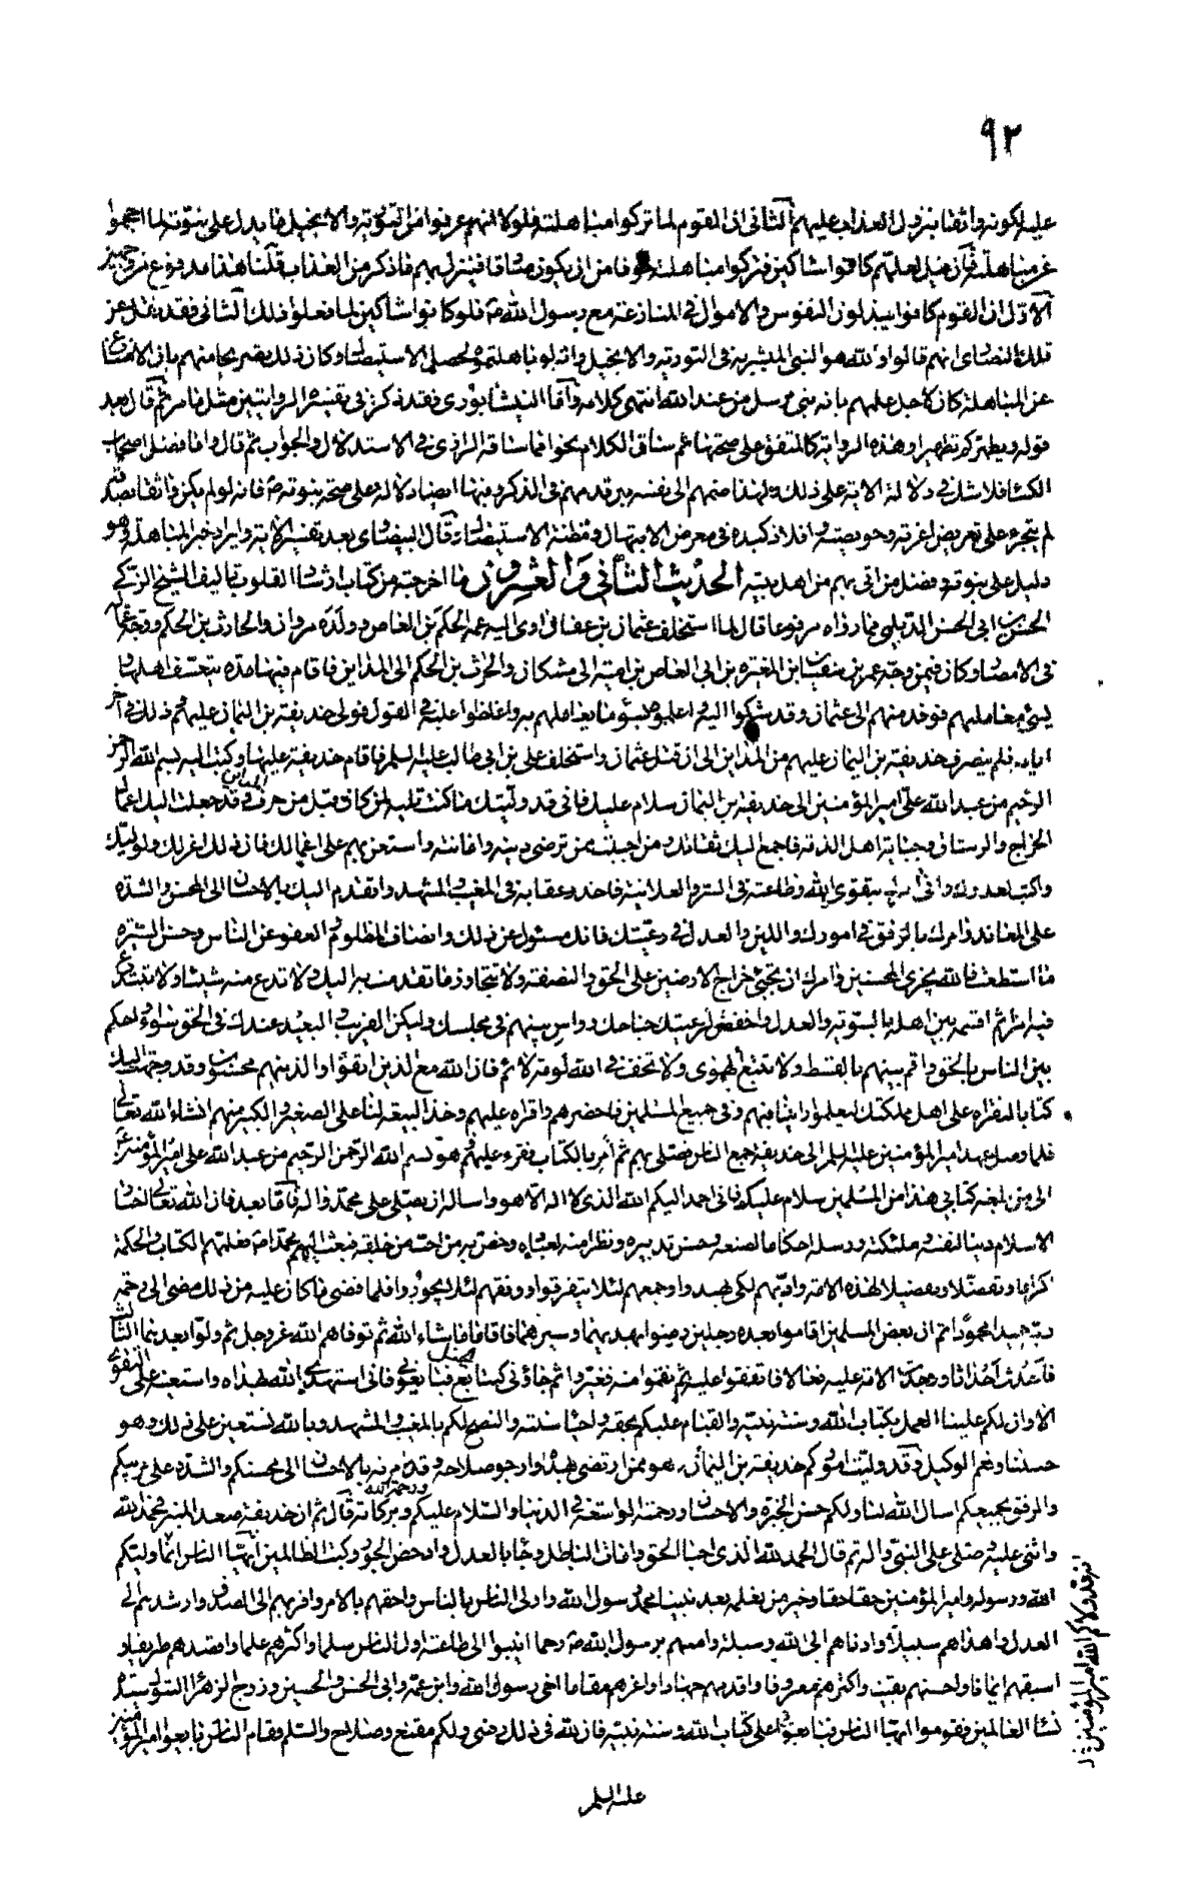 ٩٢
عليه لكونه واثقا بنزول العذاب عليهم الثاني ان القوم لما تركوا مباهلته فلولا انهم عرفوا من التورية والانجيل ما يدل على نبوته لما احجموا
عن مباهلته فان قيل لعلهم كانوا شاكين فتركوا مباهلته خوفا من ان يكون صادقا فينزل بهم ما ذكر من العذاب قلنا هذا مدفوع من وجهين
الاول ان القوم كانوا يبذلون النفوس والاموال في المنازعة مع رسول الله ص فلو كانوا شاكين لما فعلوا ذلك الثاني قد نقل عن
تلك النصارى انهم قالوا والله هو النبي المبشر به في التورية والانجيل وانه لو باهلتموه لحصل الاستيصال وكان ذلك تصريحا منهم بان الامتناع
عن المباهلة كان لاجل علمهم بانه نبي مرسل من عند الله انتهى كلامه واما النيشابوري فقد ذكر في تفسيره الروايتين مثل ما مر ثم قال بعد
قوله ويطهركم تطهيرا وهذه الرواية كالمتفق على صحتها ثم ساق الكلام نحوا مما ساقه الرازي في الاستدلال والجواب ثم قال واما فضل اصحاب
الكساء فلا شك في دلالة الاية على ذلك ولهذا ضمهم الى نفسه بل قدمهم في الذكر وفيها ايضا دلالة على صحة نبوته ص فانه لو لم يكن واثقا بصدقه
لم يتجرء على تعريض اعزته وخويصته وافلاذ كبده في معرض الابتهال ومظنة الاستيصال وقال البيضاوي بعد تفسير الاية وايراد خبر المباهلة وهو
دليل على نبوته وفضل من اتى بهم من اهل بيته الحديث الثاني والعشرون ما اخرجته من كتاب ارشاد القلوب تاليف الشيخ الزكي
الحسن بن ابي الحسن الديلمي مما رواه مرفوعا قال لما استخلف عثمان بن عفان اوى اليه عمه الحكم بن العاص وولده مروان والحارث بن الحكم ووجه عماله
في الامصار وكان فيمن وجه عمر بن سفيان ابن المغيرة بن ابي العاص بن امية الى مشكان والحرث بن الحكم الى المداين فاقام فيها مدة يتعسف اهلها و
يسيء معاملتهم فوفد منهم الى عثمان وفد شكوا اليه واعلموه بسوء ما يعاملهم به واغلظوا عليه في القول فولى حذيفة بن اليمان عليهم وذلك في آخر
ايامه فلم ينصرف حذيفة بن اليمان عليهم من المداين الى ان قتل عثمان واستخلف علي بن ابي طالب عليه السلم فاقام حذيفة عليها وكتب اليه بسم الله الرحمن
الرحيم من عبد الله علي امير المؤمنين الى حذيفة بن اليمان سلام عليك فاني قد وليتك ما كنت تليه لمن كان قبل من حرف المداين وقد جعلت اليك اعمال
الخراج والرستاق وجباية اهل الذمة فاجمع اليك ثقاتك ومن احببت ممن ترضى دينه وامانته واستعن بهم على اعمالك فان ذلك اعز لك ولوليك
واكبت لعدوك واني آمرك بتقوى الله وطاعته في السر والعلانية فاحذر عقابه في المغيب والمشهد واتقدم اليك بالاحسان الى المحسن والشدة
على المعاند وامرك بالرفق في امورك واللين والعدل في رعيتك فانك مسئول عن ذلك وانصاف المظلوم والعفو عن الناس وحسن السيرة
ما استطعت فالله يجزي المحسنين وامرك ان تجبي خراج الارضين على الحق والنصفة ولا تتجاوز ما تقدمت به اليك ولا تدع منه شيئا ولا تبتدع
فيه امرا ثم اقسمه بين اهله بالسوية والعدل واخفض لرعيتك جناحك وواس بينهم في مجلسك وليكن القريب والبعيد عندك في الحق سواء واحكم
بين الناس بالحق واقم بينهم بالقسط ولا تتبع الهوى ولا تخف في الله لومة لائم فان الله مع الذين اتقوا والذين هم محسنون وقد وجهت اليك
كتابا لتقراه على اهل مملكتك ليعلموا راينا فيهم وفي جميع المسلمين فاحضرهم واقراه عليهم وخذ البيعة لنا على الصغير والكبير منهم انشاء الله تعالى
فلما وصل عهد امير المؤمنين عليه السلم الى حذيفة جمع الناس فصلى بهم ثم امر بالكتاب فقرء عليهم وهو بسم الله الرحمن الرحيم من عبد الله علي امير المؤمنين
الى من بلغه كتابي هذا من المسلمين سلام عليكم فاني احمد اليكم الله الذي لا اله الا هو واساله ان يصلي على محمد واله واما بعد فان الله تعالى اختار
الاسلام دينا لنفسه وملئكته ورسله احكاما لصنعه وحسن تدبيره ونظرا منه لعباده وخص به من احب من خلقه فبعث اليهم محمدا ص فعلمهم الكتاب والحكمة
اكراما وتفضلا لهذه الامة وادبهم لكي يهتدوا وجمعهم لئلا يتفرقوا ووفقهم لئلا يجوروا فلما قضى ما كان عليه من ذلك مضى الى رحمة
ربه حميدا محمودا ثم ان بعض المسلمين اقاموا بعده رجلين رضوا بهديهما وسيرتهما فاقاما ما شاء الله ثم توفاهم الله عز وجل ثم ولوا بعدهما الثالث
فاحدث احداثا ووجدت الامة عليه فعالا فاتفقوا عليه ثم نقموا منه فغيروا ثم جاؤني كتتابع الخيل فبايعوني فاني استهدي الله بهداه واستعينه على التقوى
الا وان لكم علينا العمل بكتاب الله وسنة نبيه والقيام عليكم بحقه واحياء سنته والنصح لكم بالمغيب والمشهد وبالله نستعين على ذلك وهو
حسبنا ونعم الوكيل وقد وليت اموركم حذيفة بن اليمان وهو ممن ارتضي بهداه وارجو صلاحه وقد امرته بالاحسان الى محسنكم والشدة على مريبكم
والرفق بجميعكم اسال الله لنا ولكم حسن الخيرة والاحسان ورحمته الواسعة في الدنيا والسلام عليكم ورحمة الله وبركاته قال ثم ان حذيفة صعد المنبر فحمد الله
واثنى عليه وصلى على النبي واله ثم قال الحمد لله الذي احيا الحق وامات الباطل وجاء بالعدل وادحض الجور وكبت الظالمين ايها الناس انما وليكم
الله ورسوله وامير المؤمنين حقا حقا وخير من نعلمه بعد نبينا محمد رسول الله واولى الناس بالناس واحقهم بالامر واقربهم الى الصدق وارشدهم الى
العدل واهداهم سبيلا وادناهم الى الله وسيلة وامسهم برسول الله ص رحما انيبوا الى طاعة اول الناس سلما واكثرهم علما واقصدهم طريقة و
اسبقهم ايمانا واحسنهم يقينا واكثرهم معروفا واقدمهم جهادا واعزهم مقاما اخي رسول الله وابن عمه وابي الحسن والحسين وزوج الزهراء البتول سيدة
نساء العالمين فقوموا ايها الناس فبايعوا على كتاب الله وسنة نبيه فان لله في ذلك رضى ولكم مقنع وصلاح والسلم فقام الناس فبايعوا امير المؤمنين
عليه السلم